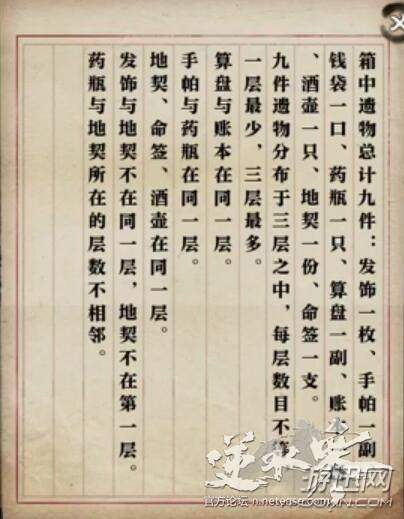 箱中遗物总计九件：发饰一枚、手帕一副
钱袋一口、药瓶一只、算盘一副、账
、酒壶一只、地契一份、命签一支。
九件遗物分布于三层之中，每层数目不
一层最少，三层最多。
算盘与账本在同一层。
手帕与药瓶在同一层。
地契、命签、酒壶在同一层。
发饰与地契不在同一层，地契不在第一层。
药瓶与地契所在的层数不相邻。
逆水寒
游迅网
官方论坛